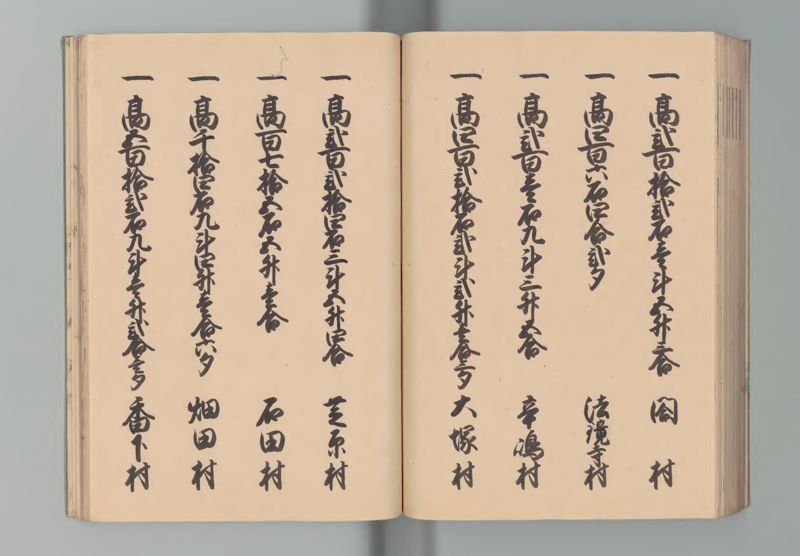 一 高弐百拾弐石壱斗五升三合 閤村
一 高四百六石四合弐夕 法鏡寺村
一 高弐百壱石九斗三升五合 辛嶋村
一 高四百弐拾石弐斗弐升壱合三夕 大塚村
一 高弐百弐拾四石三斗五升四合 芝原村
一 高百七拾五石五升壱合 石田村
一 高千拾四石九斗四升壱合六夕 畑田村
一 高五百拾弐石九斗壱升弐合三夕 番下村